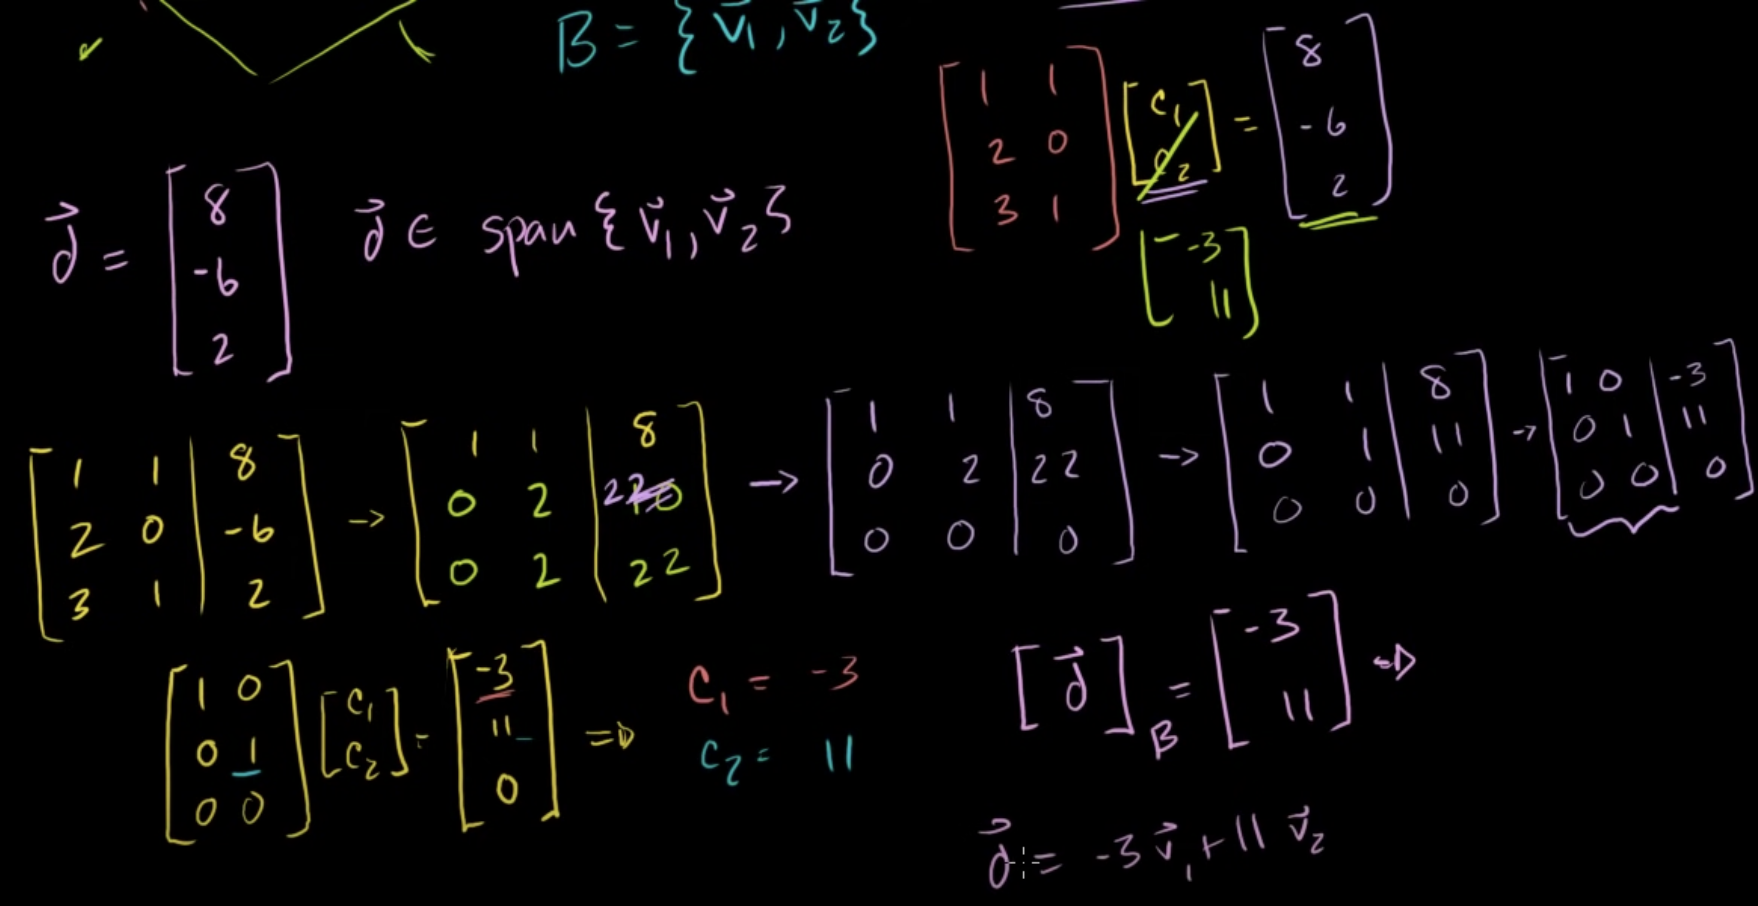 B = {v⃗₁, v⃗₂}
[1 1; 2 0; 3 1] [c₁; c₂] = [8; -6; 2]
[-3; 11]
d⃗ = [8; -6; 2] d⃗ ∈ span{v⃗₁, v⃗₂}
[1 1 | 8; 2 0 | -6; 3 1 | 2] → [1 1 | 8; 0 2 | 22; 0 2 | 22] → [1 1 | 8; 0 2 | 22; 0 0 | 0] → [1 1 | 8; 0 1 | 11; 0 0 | 0] → [1 0 | -3; 0 1 | 11; 0 0 | 0]
[1 0; 0 1; 0 0] [c₁; c₂] = [-3; 11; 0] ⇒ c₁ = -3
c₂ = 11
[d⃗]_B = [-3; 11] ⇒
d⃗ = -3v⃗₁ + 11v⃗₂